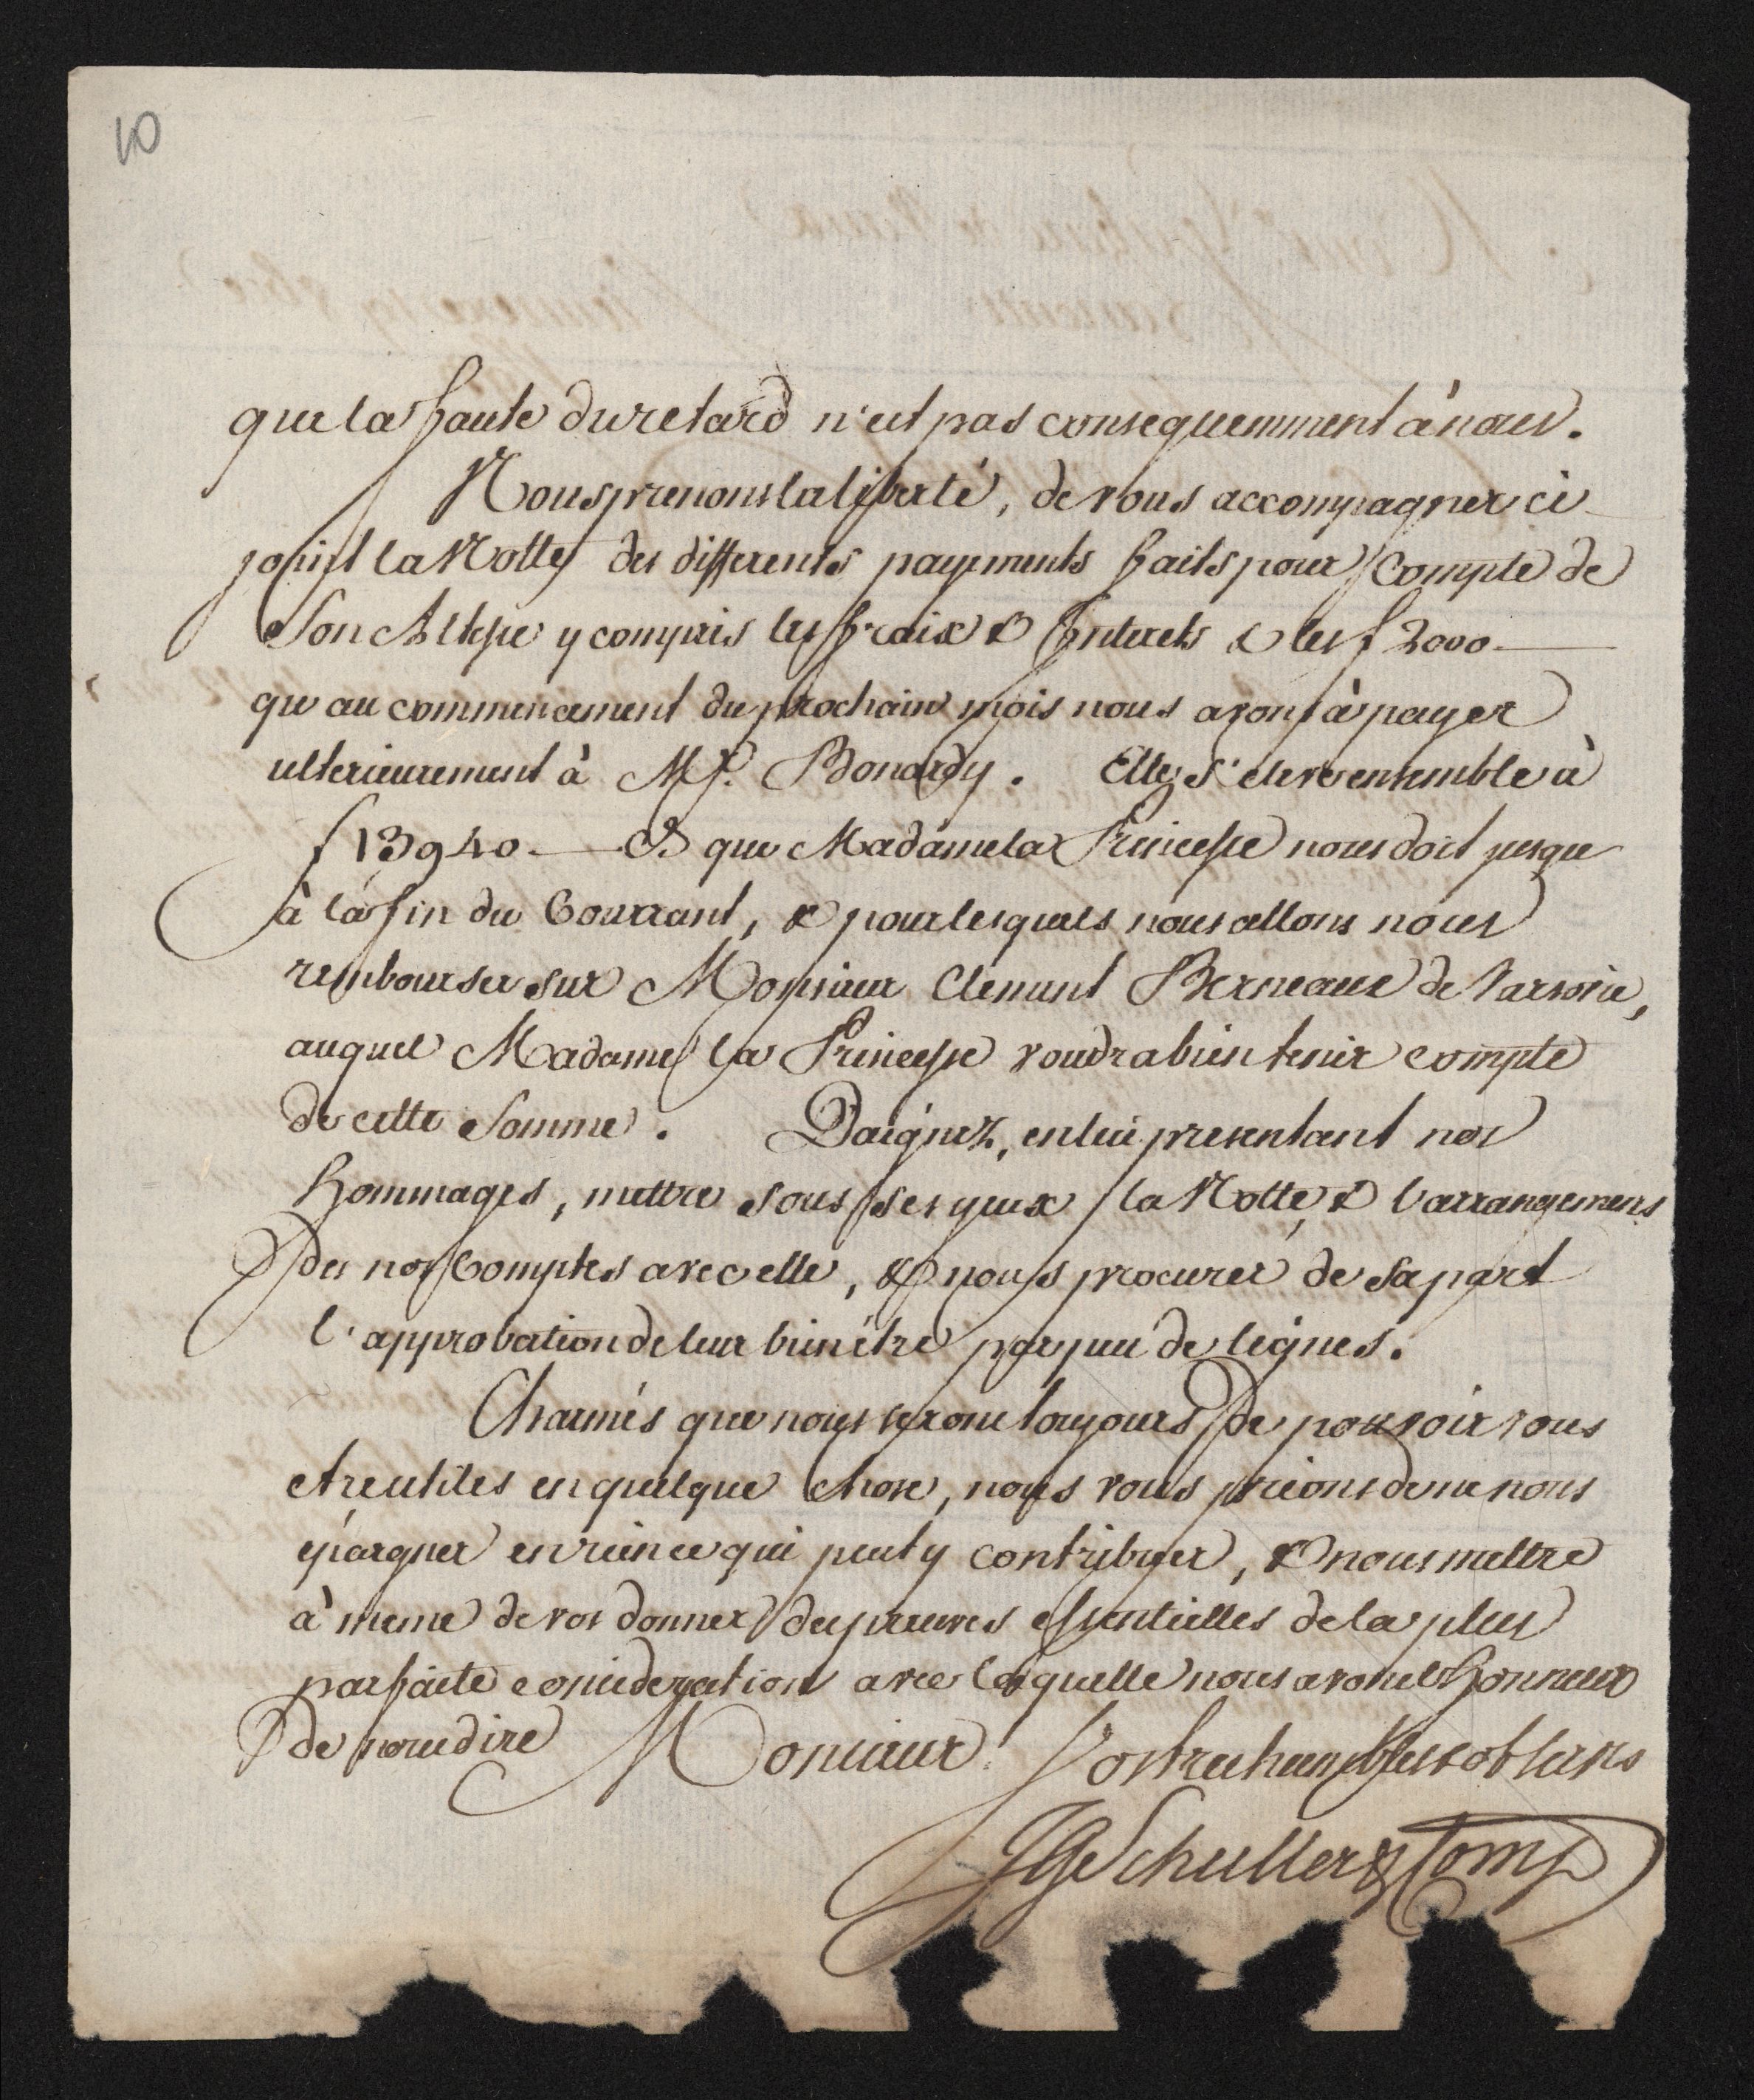 10
que la faute du retard n'est pas consequemment à nous.
Nous prenons la liberté, de vous accompagner ci
joint la Notte des differents payements faits pour Compte de
Son Altesse y compris les fraix & Interets & les f 2000 —
que au commencement du prochain mois nous avons à payer
ulterieurement à Mr. Bonardy. Elle s'eleve ensemble à
f 13940 — & que Madame la Princesse nous doit jusque
à la fin du Courrant, & pour lesquels nous allons nous
rembourser sur Monsieur Clement Berneaux de Varsovie,
auquel Madame la Princesse voudra bien tenir compte
de cette Somme. Daignez, en lui presentant nos
hommages, mettre sous ses yeux la Notte, & l'arrangemens
des nos Comptes avec elle, & nous procurer de sa part
l'approbation de leur bienêtre par peu de lignes.
Charmés que nous serons toujours de pouvoir vous
etre utiles en quelque chose, nous vous prions de ne nous
épargner en rien ce qui peut y contribuer, & nous mettre
à meme de vos donner des preuves essentielles de la plus
parfaite consideration avec laquelle nous avons l'honneur
de nous dire Monsieur! Vos tres humbles & obts servs
JGeSchuller & Comp